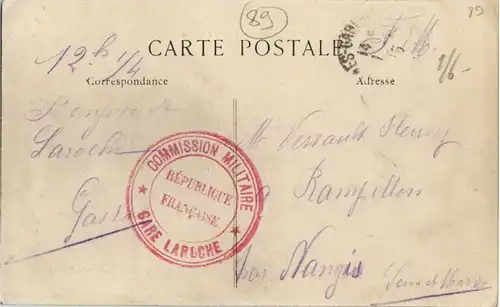 89
89
CARTE POSTALE
F. M.
12h 1/4
Correspondance
Adresse
2/6-
de
Laroche
Gaston
COMMISSION MILITAIRE
RÉPUBLIQUE
FRANÇAISE
★ GARE LAROCHE ★
M Fleury
à Rampillon
par Nangis
Seine et Marne